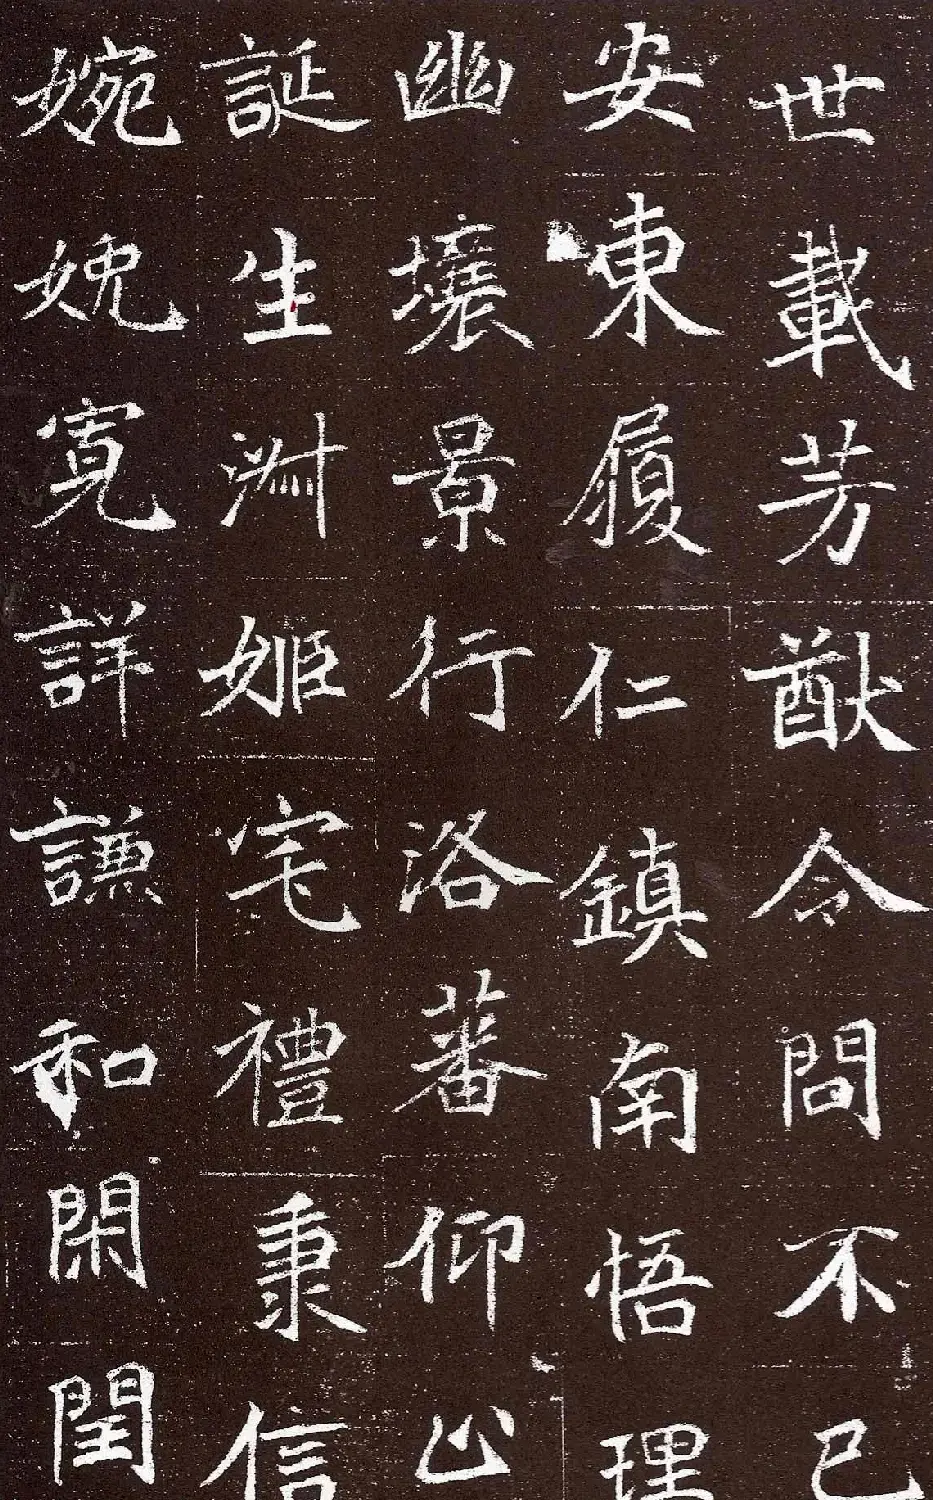 世載芳猷令問不已
安東履仁鎮南悟理
幽壤景行洛蕃仰止
誕生淋姬宅禮秉信
婉娩寬詳謙和閑閏